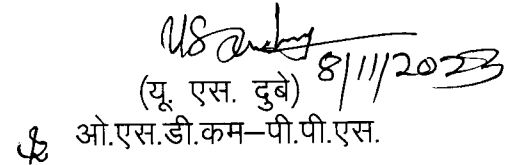 8/11/2023
(यू. एस. दुबे)
ओ.एस.डी.कम–पी.पी.एस.